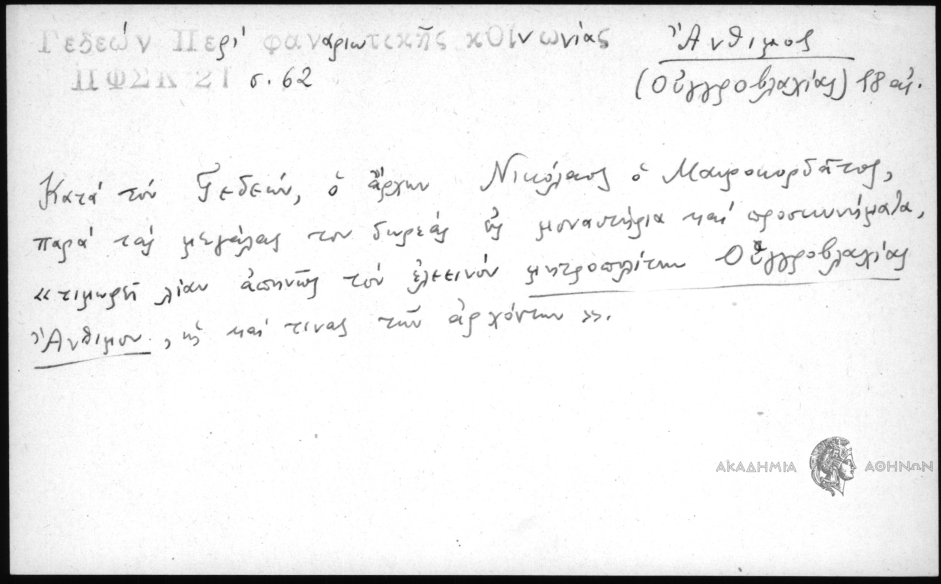 Γεδεών Περί φαναριωτικῆς κοινωνίας
ΠΦΣΚ 21 σ. 62
Ἄνθιμος
(Οὑγγροβλαχίας) 18 αἰ.
Κατά τόν Γεδεών, ὁ ἄρχων Νικόλαος ὁ Μαυροκορδᾶτος,
παρά τάς μεγάλας του δωρεάς εἰς μοναστήρια καί προσκυνήματα,
«τιμωρεῖ λίαν ἀπηνῶς τόν ἐλεεινόν μητροπολίτην Οὑγγροβλαχίας
Ἄνθιμον, ὡς καί τινας τῶν ἀρχόντων».
ΑΚΑΔΗΜΙΑ ΑΘΗΝΩΝ